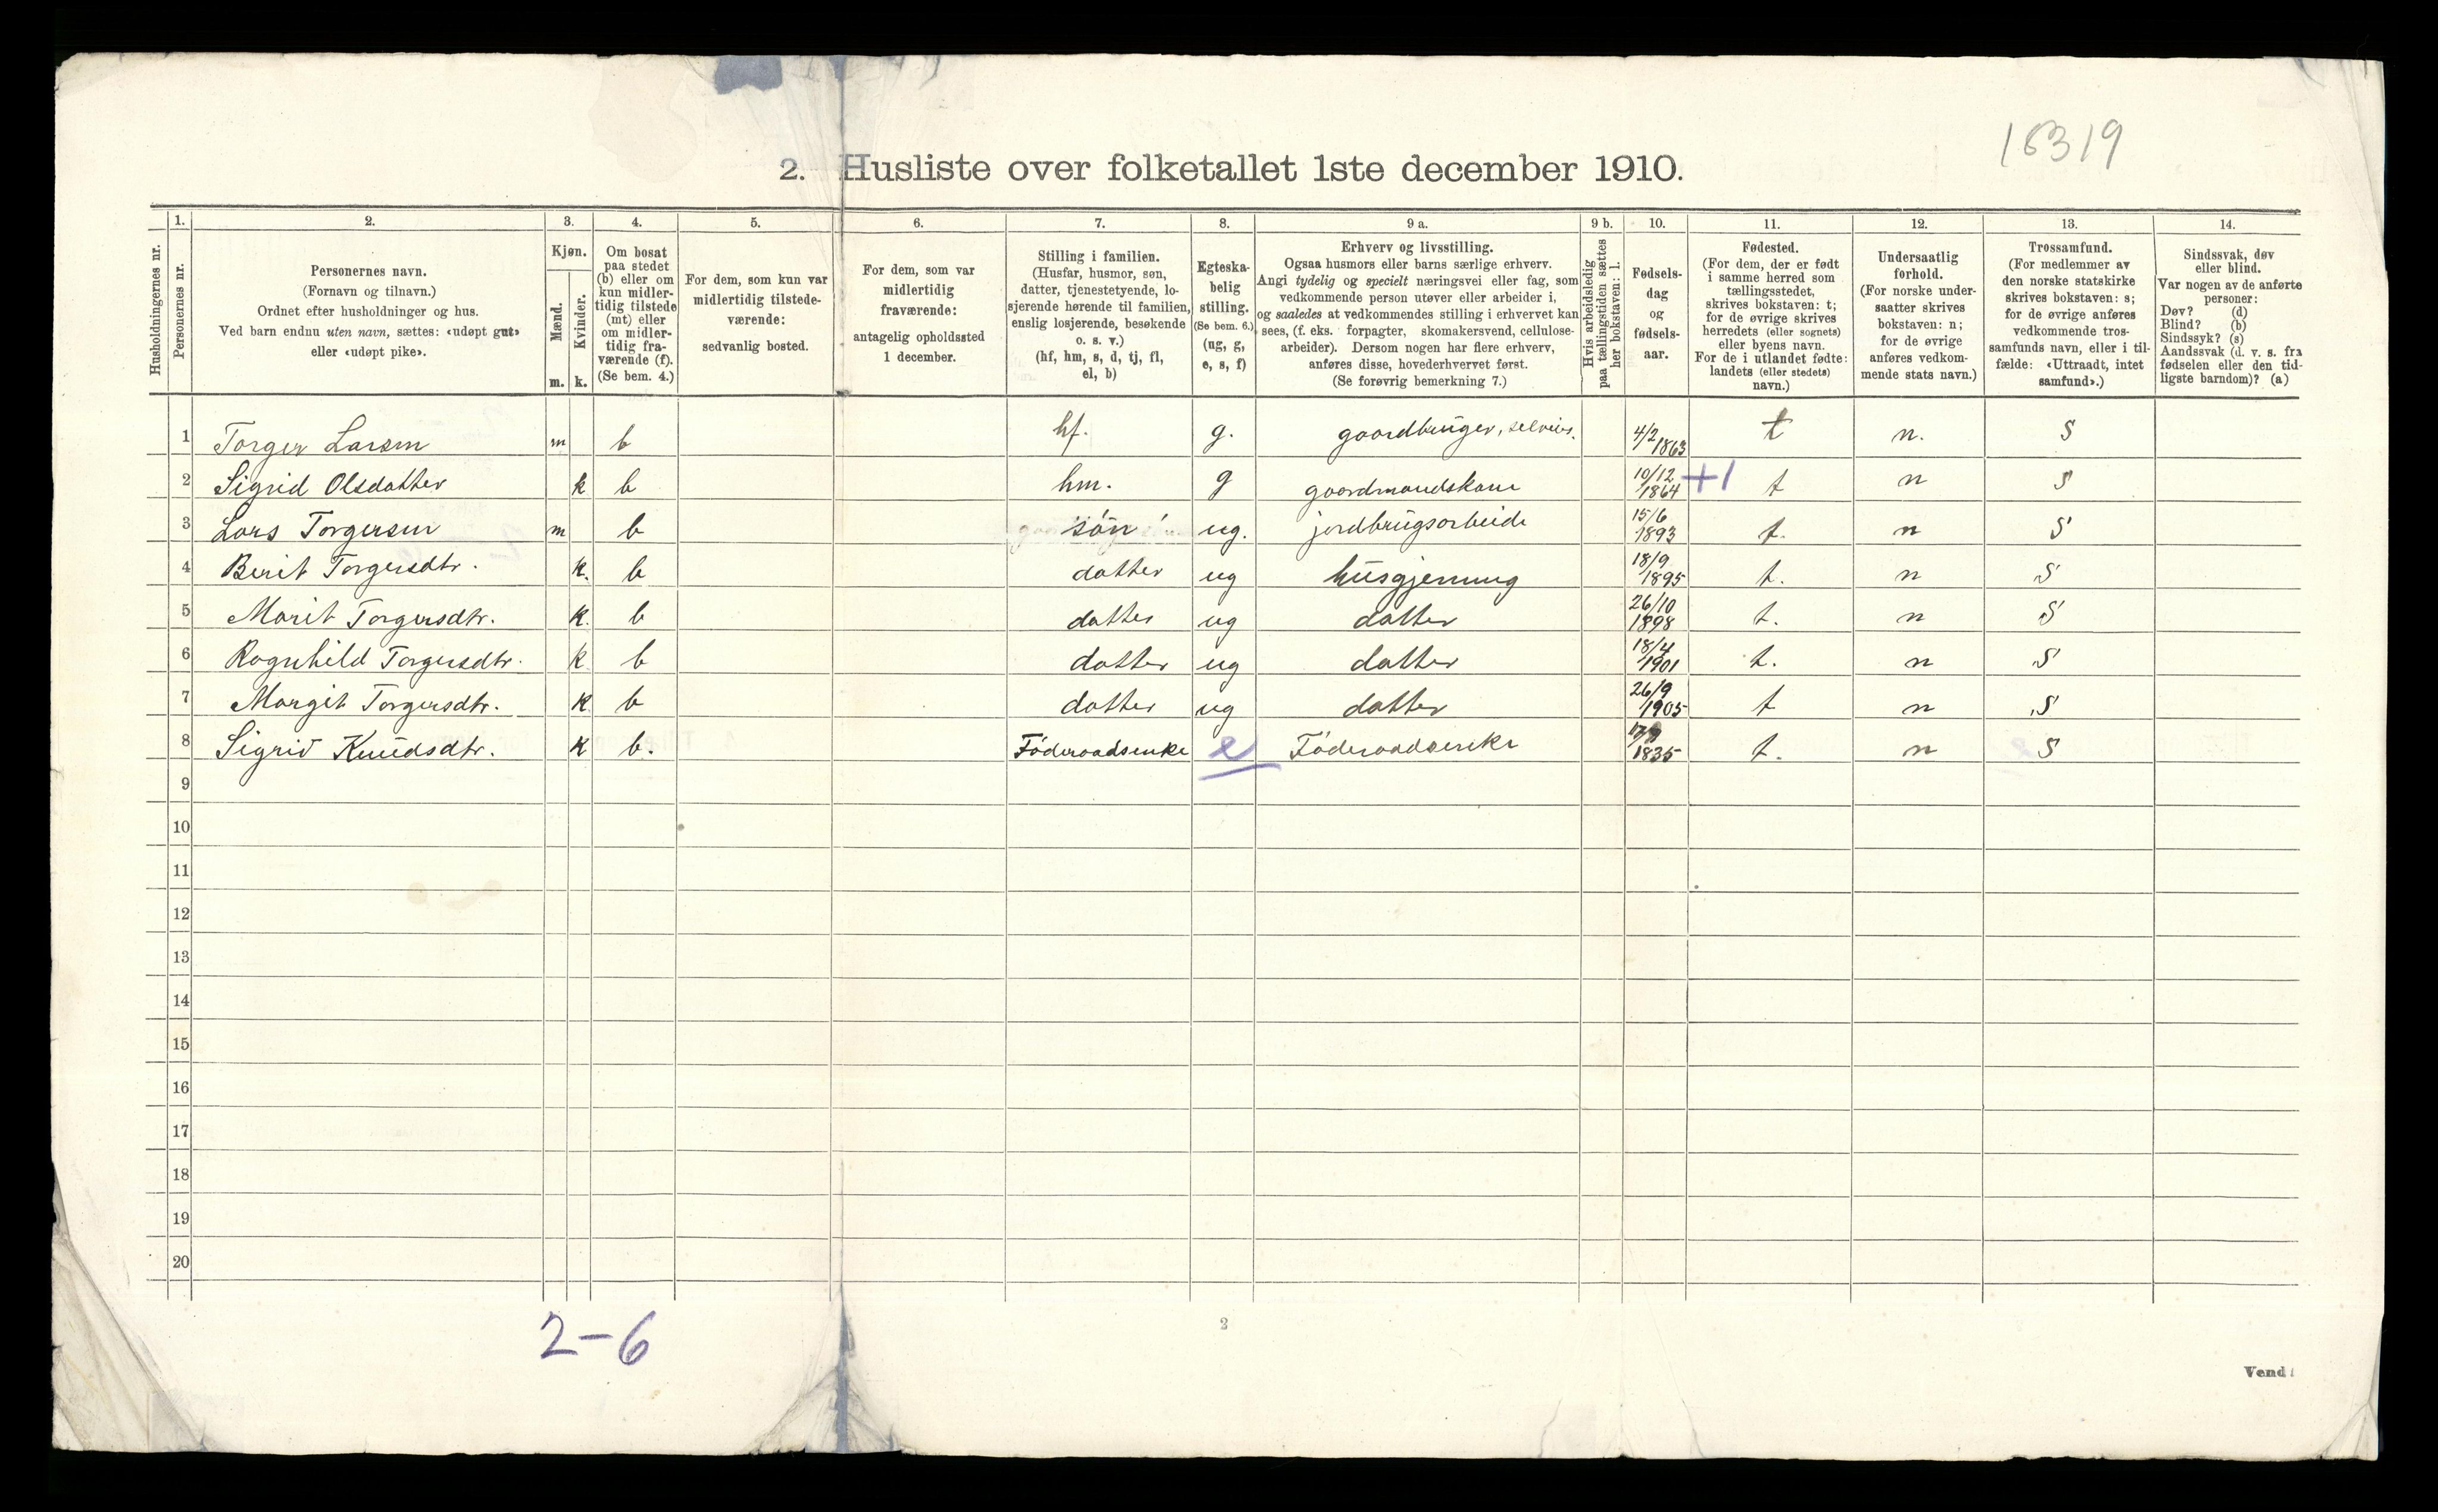 18319
2. Husliste over folketallet 1ste december 1910.
Husholdningernes nr.
1.
Personernes nr.
2.
Personernes navn.
(Fornavn og tilnavn.)
Ordnet efter husholdninger og hus.
Ved barn endnu uten navn, sættes: «udøpt gut»
eller «udøpt pike».
3.
Kjøn.
Mænd.
m.
Kvinder.
k.
4.
Om bosat
paa stedet
(b) eller om
kun midler-
tidig tilstede
(mt) eller
om midler-
tidig fra-
værende (f).
(Se bem. 4.)
5.
For dem, som kun var
midlertidig tilstede-
værende:
sedvanlig bosted.
6.
For dem, som var
midlertidig
fraværende:
antagelig opholdssted
1 december.
7.
Stilling i familien.
(Husfar, husmor, søn,
datter, tjenestetyende, lo-
sjerende hørende til familien,
enslig losjerende, besøkende
o. s. v.)
(hf, hm, s, d, tj, fl,
el, b)
8.
Egteska-
belig
stilling.
(Se bem. 6.)
(ug, g,
e, s, f)
9 a.
Erhverv og livsstilling.
Ogsaa husmors eller barns særlige erhverv.
Angi tydelig og specielt næringsvei eller fag, som
vedkommende person utøver eller arbeider i,
og saaledes at vedkommendes stilling i erhvervet kan
sees, (f. eks. forpagter, skomakersvend, cellulose-
arbeider). Dersom nogen har flere erhverv,
anføres disse, hovederhvervet først.
(Se forøvrig bemerkning 7.)
9 b.
Hvis arbeidsledig
paa tællingstiden sættes
her bokstaven: l.
10.
Fødsels-
dag
og
fødsels-
aar.
11.
Fødested.
(For dem, der er født
i samme herred som
tællingsstedet,
skrives bokstaven: t;
for de øvrige skrives
herredets (eller sognets)
eller byens navn.
For de i utlandet fødte:
landets (eller stedets)
navn.)
12.
Undersaatlig
forhold.
(For norske under-
saatter skrives
bokstaven: n;
for de øvrige
anføres vedkom-
mende stats navn.)
13.
Trossamfund.
(For medlemmer av
den norske statskirke
skrives bokstaven: s;
for de øvrige anføres
vedkommende tros-
samfunds navn, eller i til-
fælde: «Uttraadt, intet
samfund».)
14.
Sindssvak, døv
eller blind.
Var nogen av de anførte
personer:
Døv? (d)
Blind? (b)
Sindssyk? (s)
Aandssvak (d. v. s. fra
fødselen eller den tid-
ligste barndom)? (a)
1 Torger Larsen m b hf. g. gaardbruger, selveier. 4/2 1863 t n. S
2 Sigrid Olsdatter k b hm. g gaardmandskone 10/12 1864 +1 t n S
3 Lars Torgersen m b søn ug. jordbrugsarbeide 15/6 1893 t. n S
4 Berit Torgersdtr. k. b datter ug husgjerning 18/9 1895 t. n S
5 Marit Torgersdtr. k. b datter ug datter 26/10 1898 t. n S
6 Ragnhild Torgersdtr. k b datter ug datter 18/4 1901 t. n S
7 Margit Torgersdtr. k b datter ug datter 26/9 1905 t n S
8 Sigrid Knudsdtr. k b. Føderaadsenke e Føderaadsenke 1835 t. n S
9
10
11
12
13
14
15
16
17
18
19
20
2-6
2
Vend!